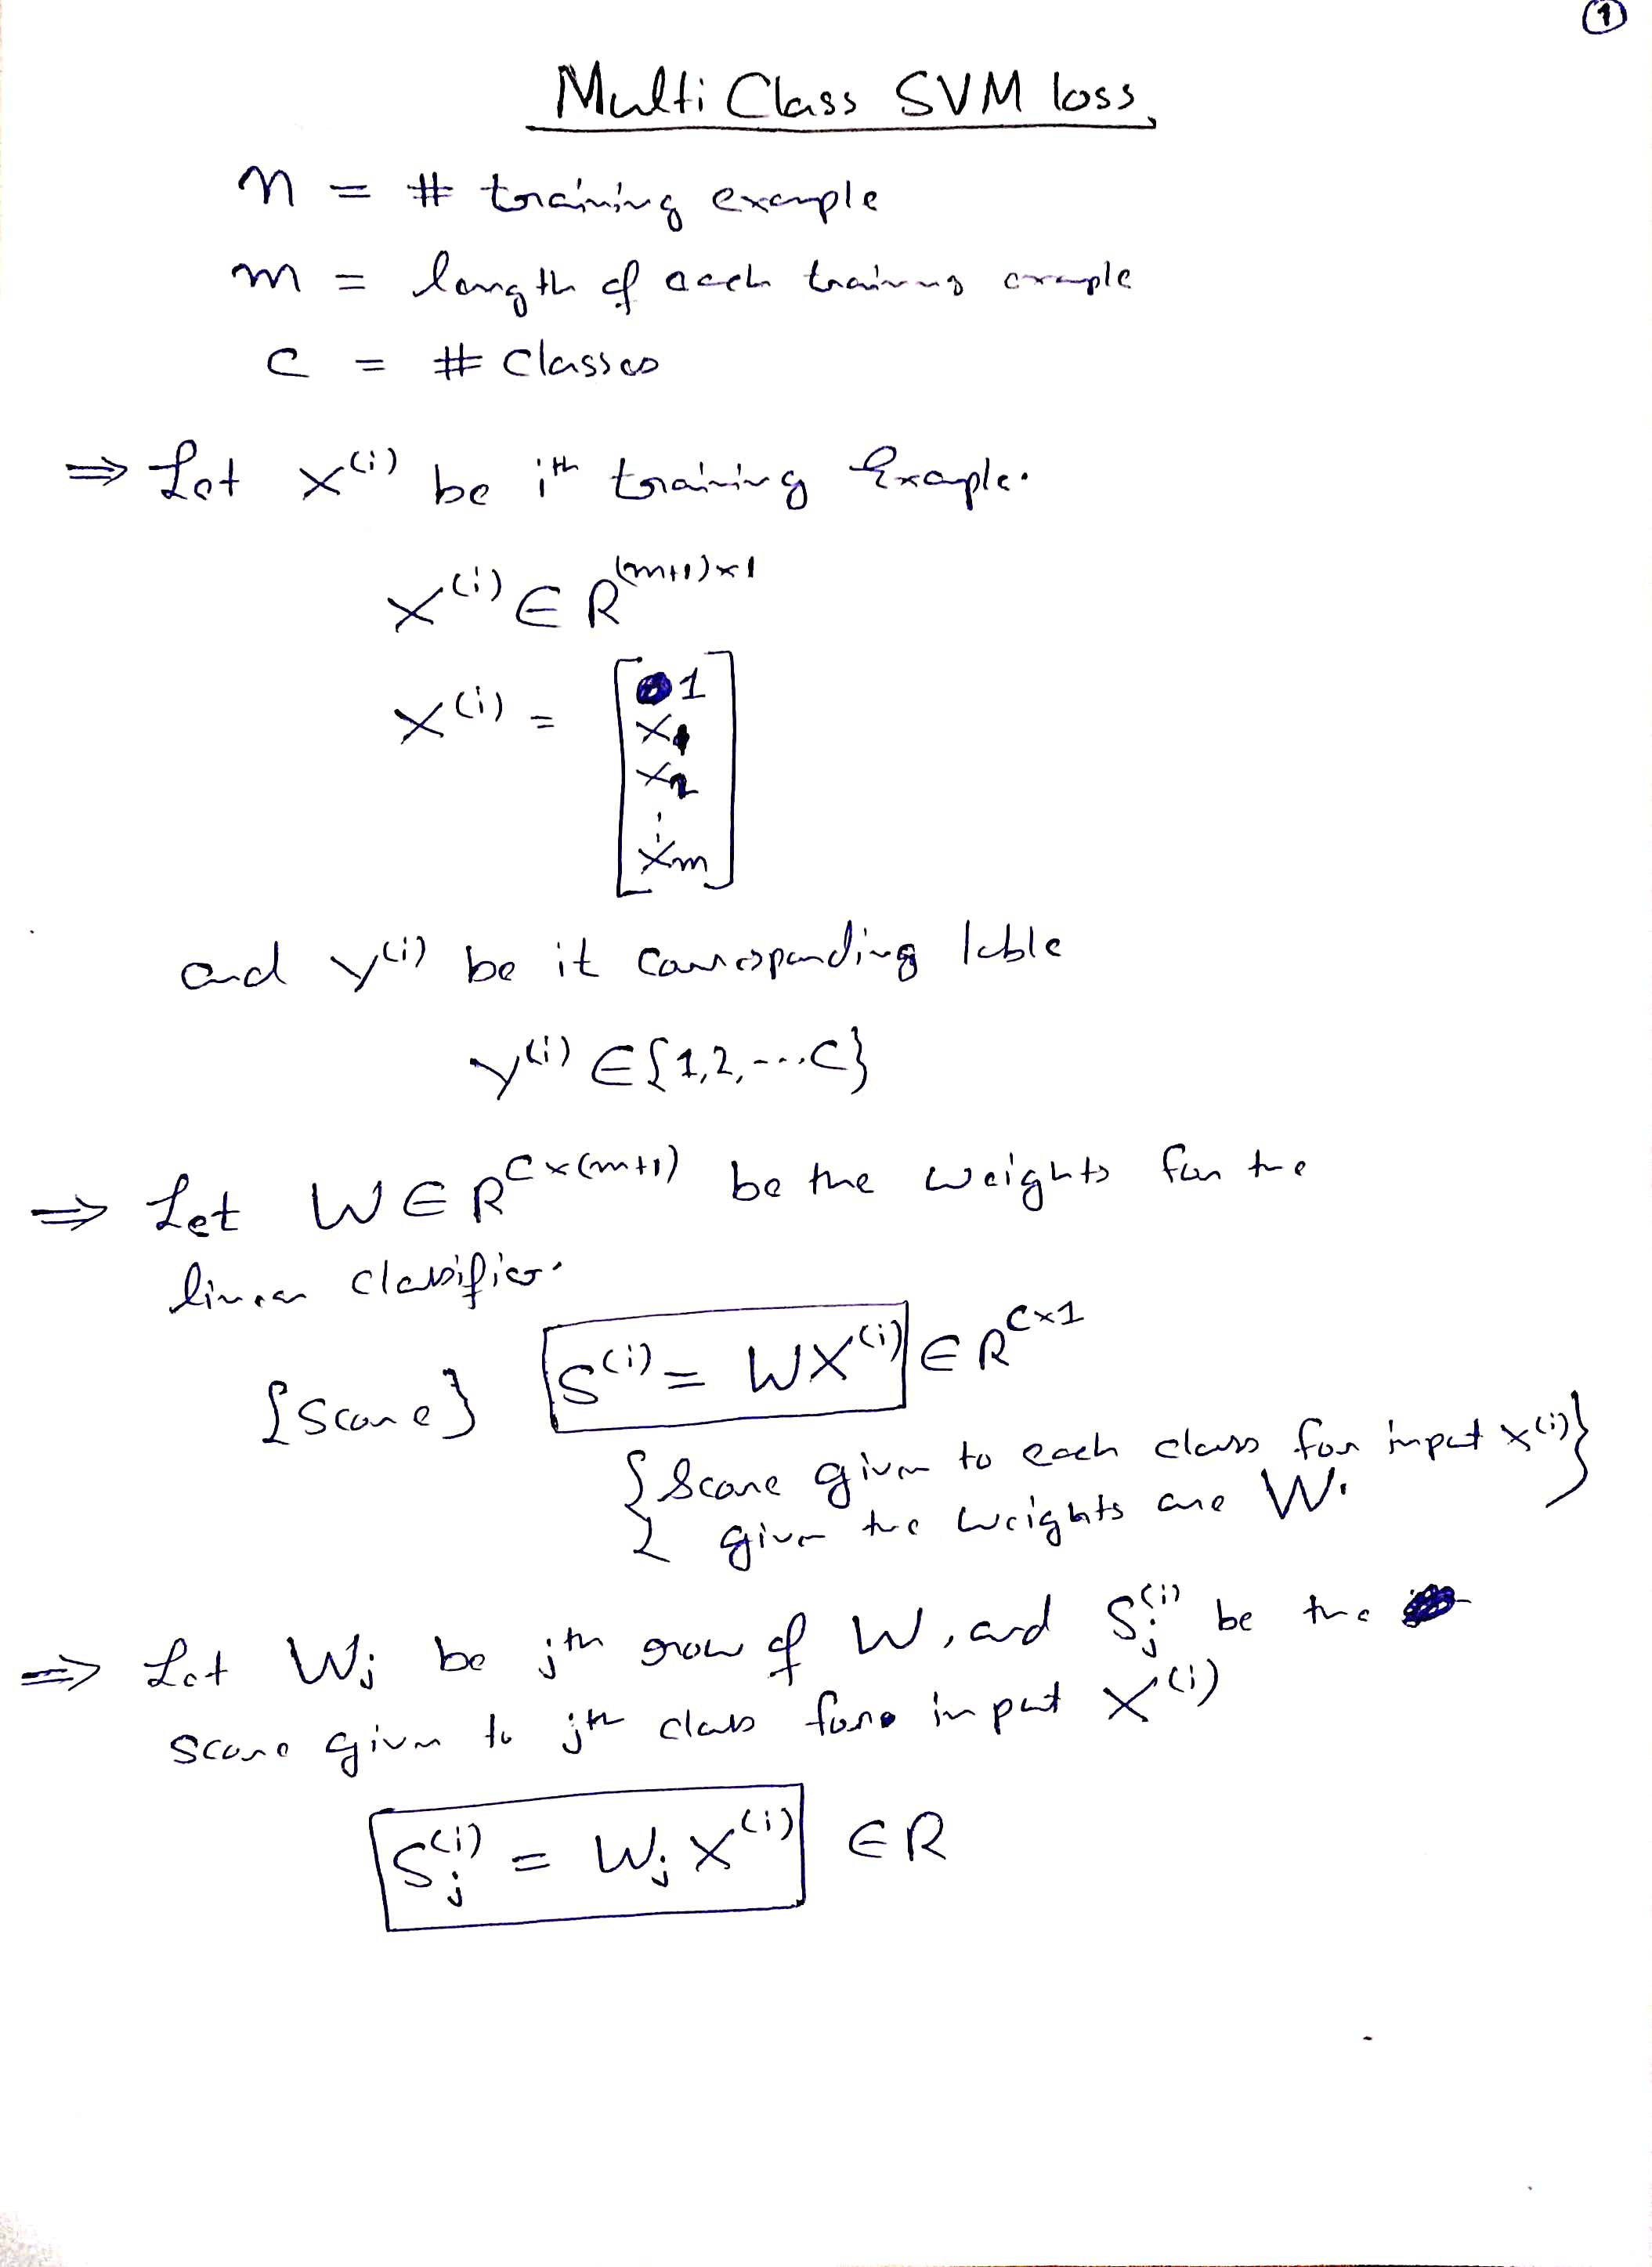 1
Multi Class SVM loss
n = # training example
m = length of each training example
C = # Classes
⇒ Let X⁽ⁱ⁾ be iᵗʰ training Example.
X⁽ⁱ⁾ ∈ R^(m+1)×1
X⁽ⁱ⁾ = [1
X1
X2
⋮
Xm]
and y⁽ⁱ⁾ be it corresponding lable
y⁽ⁱ⁾ ∈ {1,2,---C}
⇒ Let W ∈ R^C×(m+1) be the weights for the
linear classifier.
{Score} S⁽ⁱ⁾ = WX⁽ⁱ⁾ ∈ R^C×1
{Score given to each class for input X⁽ⁱ⁾
given the weights are W.}
⇒ Let Wj be jᵗʰ row of W, and Sj⁽ⁱ⁾ be the
score given to jᵗʰ class for input X⁽ⁱ⁾
Sj⁽ⁱ⁾ = Wj X⁽ⁱ⁾ ∈ R